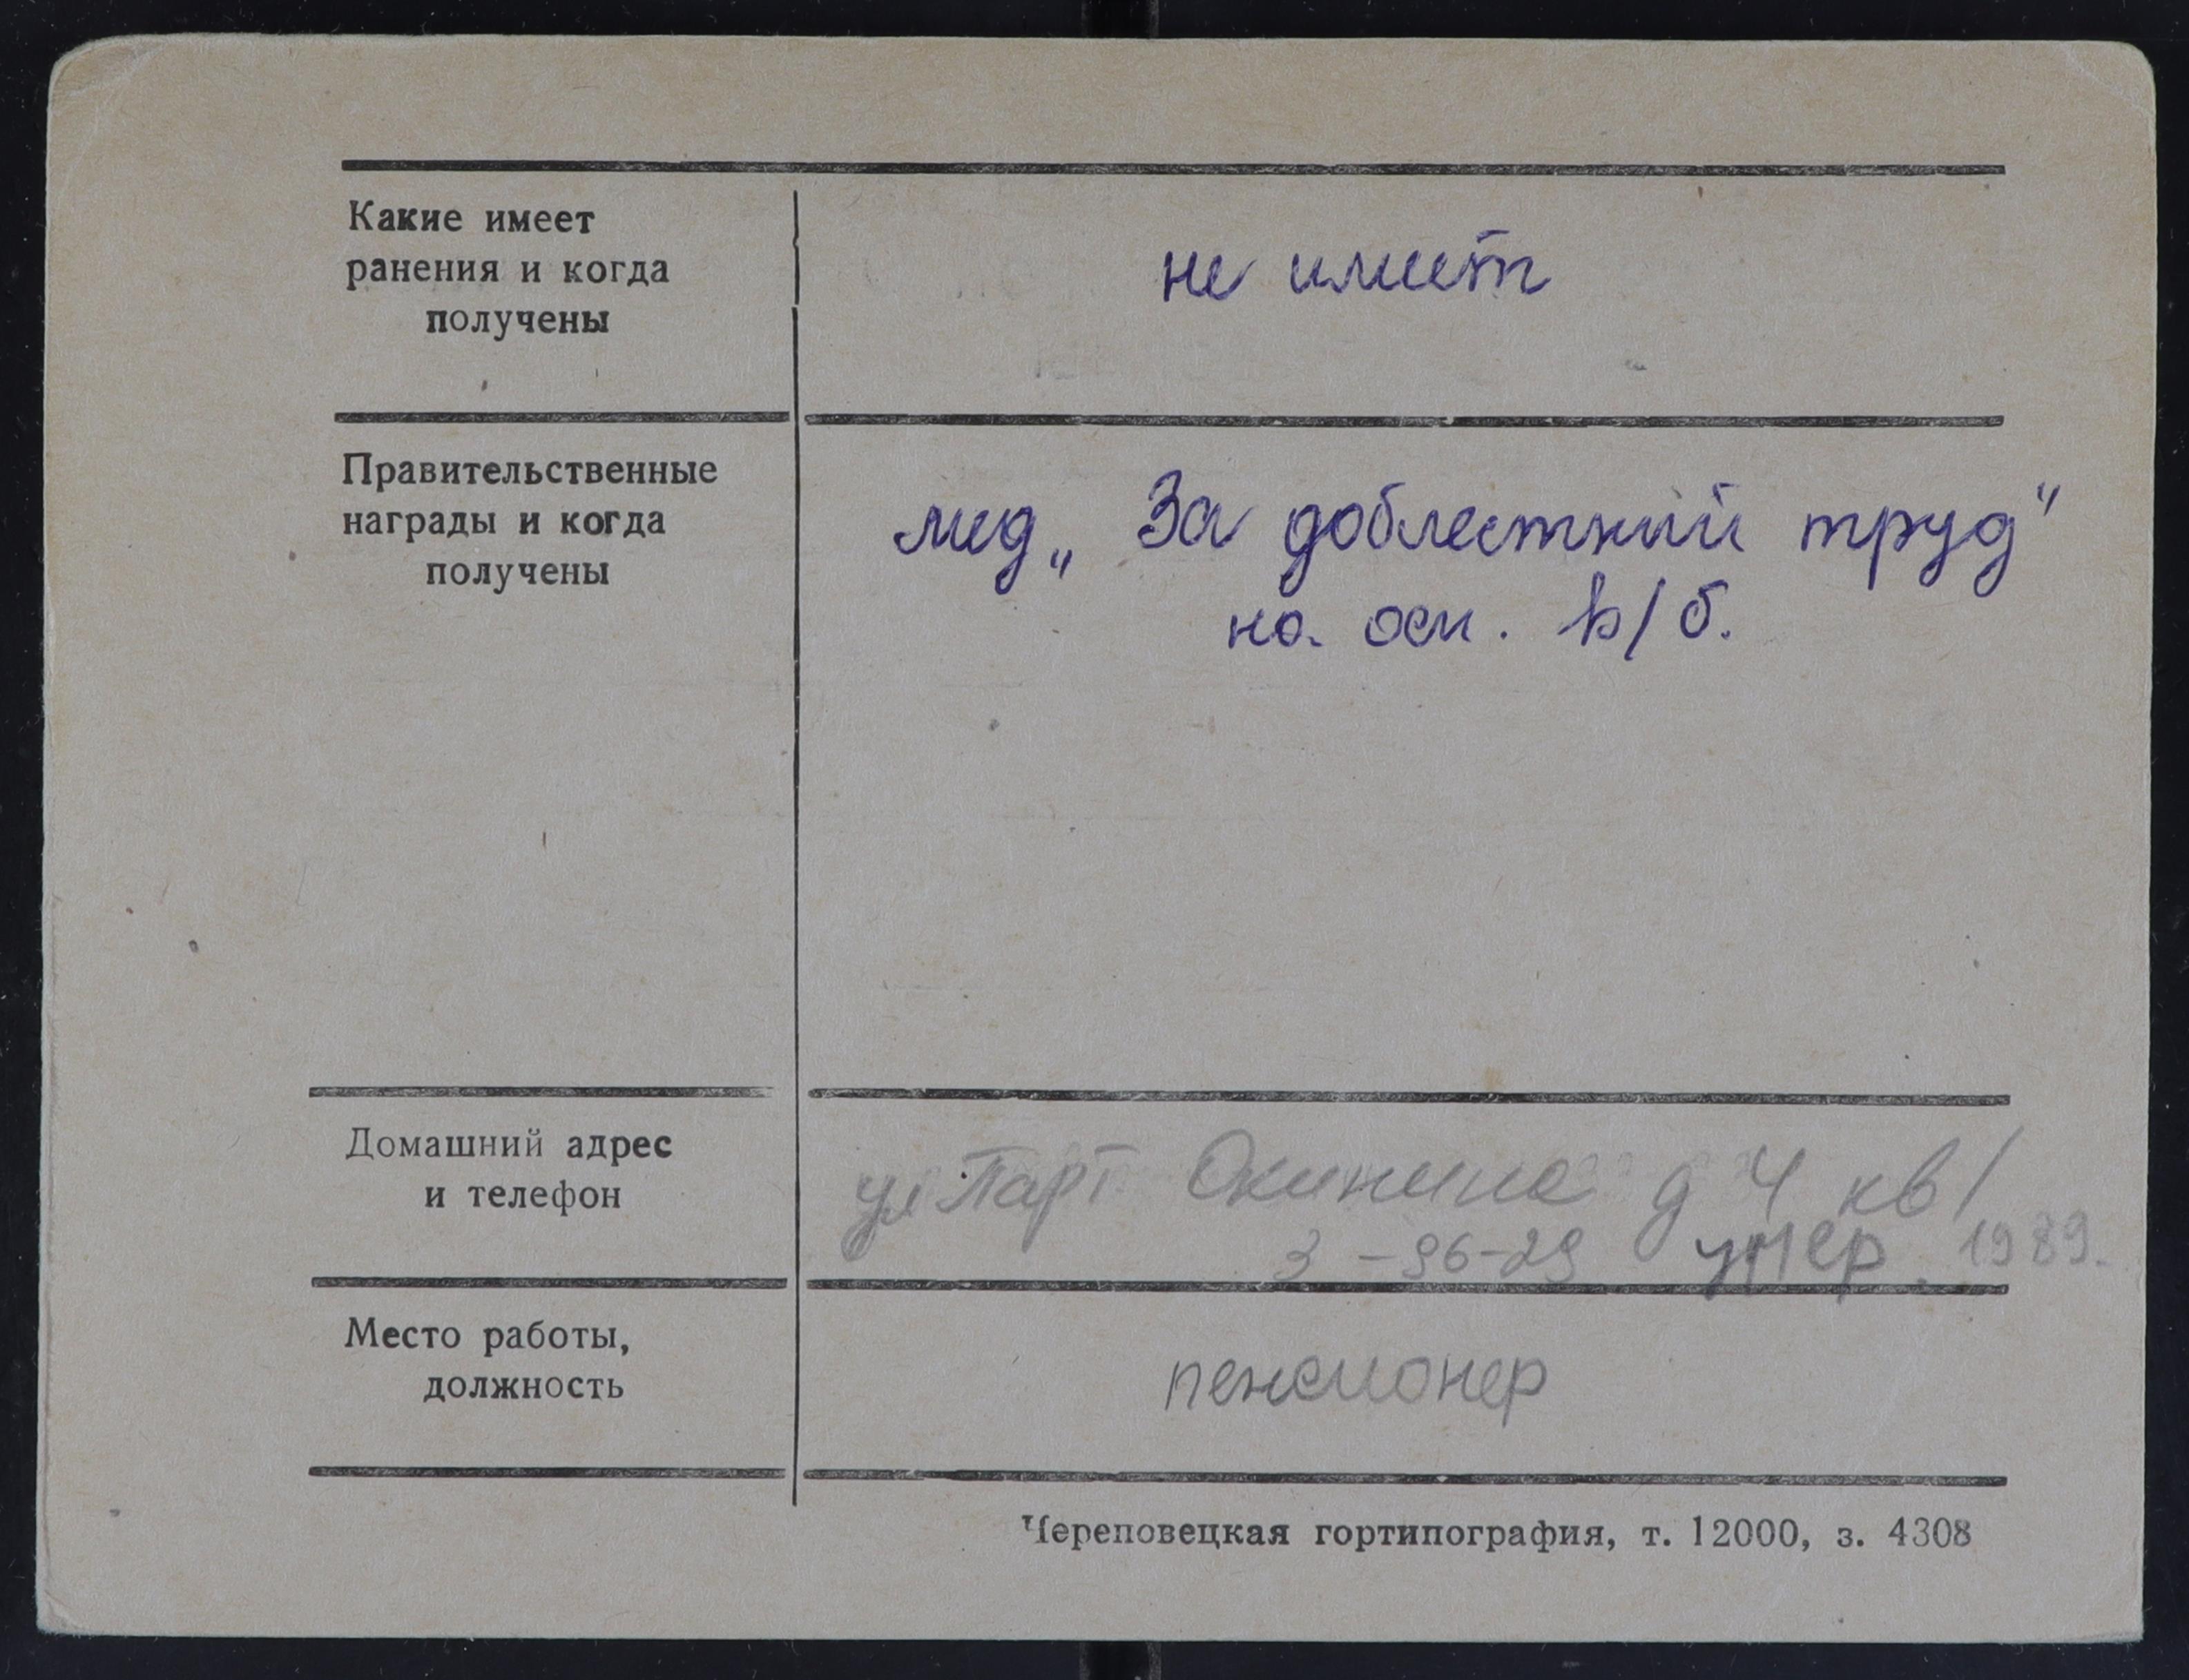 Какие имеет
ранения и когда
получены
не имеет
Правительственные
награды и когда
получены
мед „За доблестный труд"
на осн. в/б.
Домашний адрес
и телефон
ул Парт Окинина д 4 кв 1
3-96-29 умер. 1989.
Место работы,
должность
пенсионер
Череповецкая гортипография, т. 12000, з. 4308